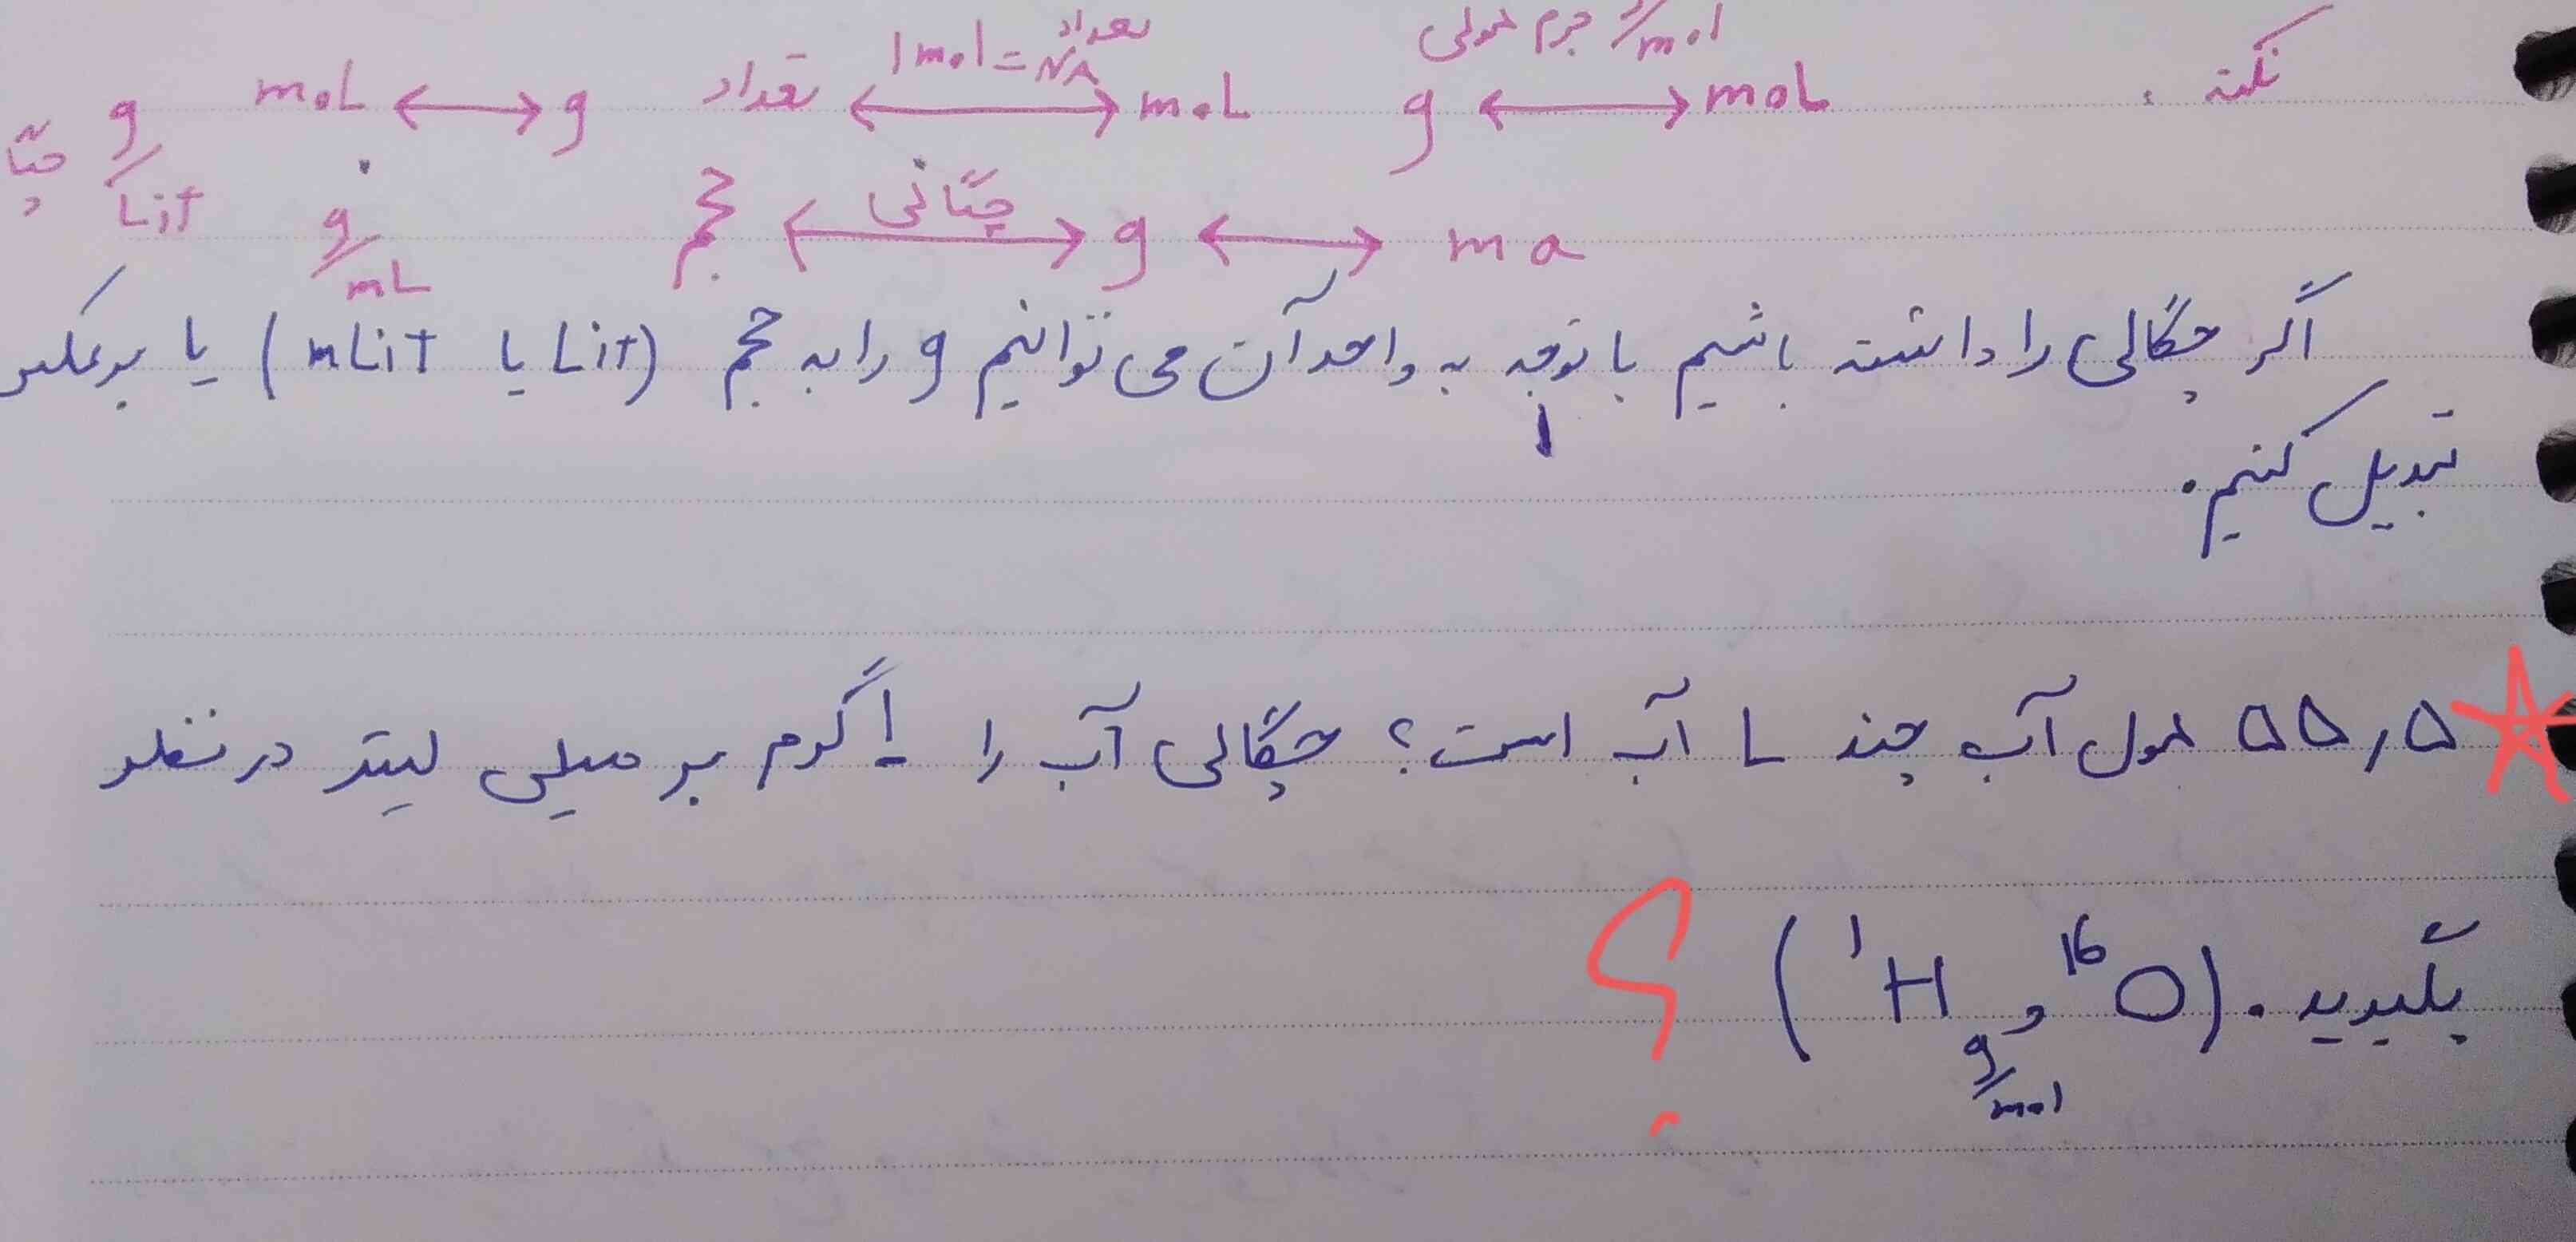 نکته :
g ⟷ moL جرم مولی g/mol
تعداد ⟷ moL 1mol = NA تعداد
moL ⟷ g
حجم ⟷ g ⟷ چگالی
g/Lit g/mL
اگر چگالی را داشته باشیم با توجه به واحد آن می توانیم g را به حجم (Lit یا mLiT) یا برعکس
تبدیل کنیم.
۵۵٫۵ مول آب چند L آب است؟ چگالی آب را ۱ گرم بر میلی لیتر در نظر
بگیرید. (¹⁶O و ¹H g/mol) ؟